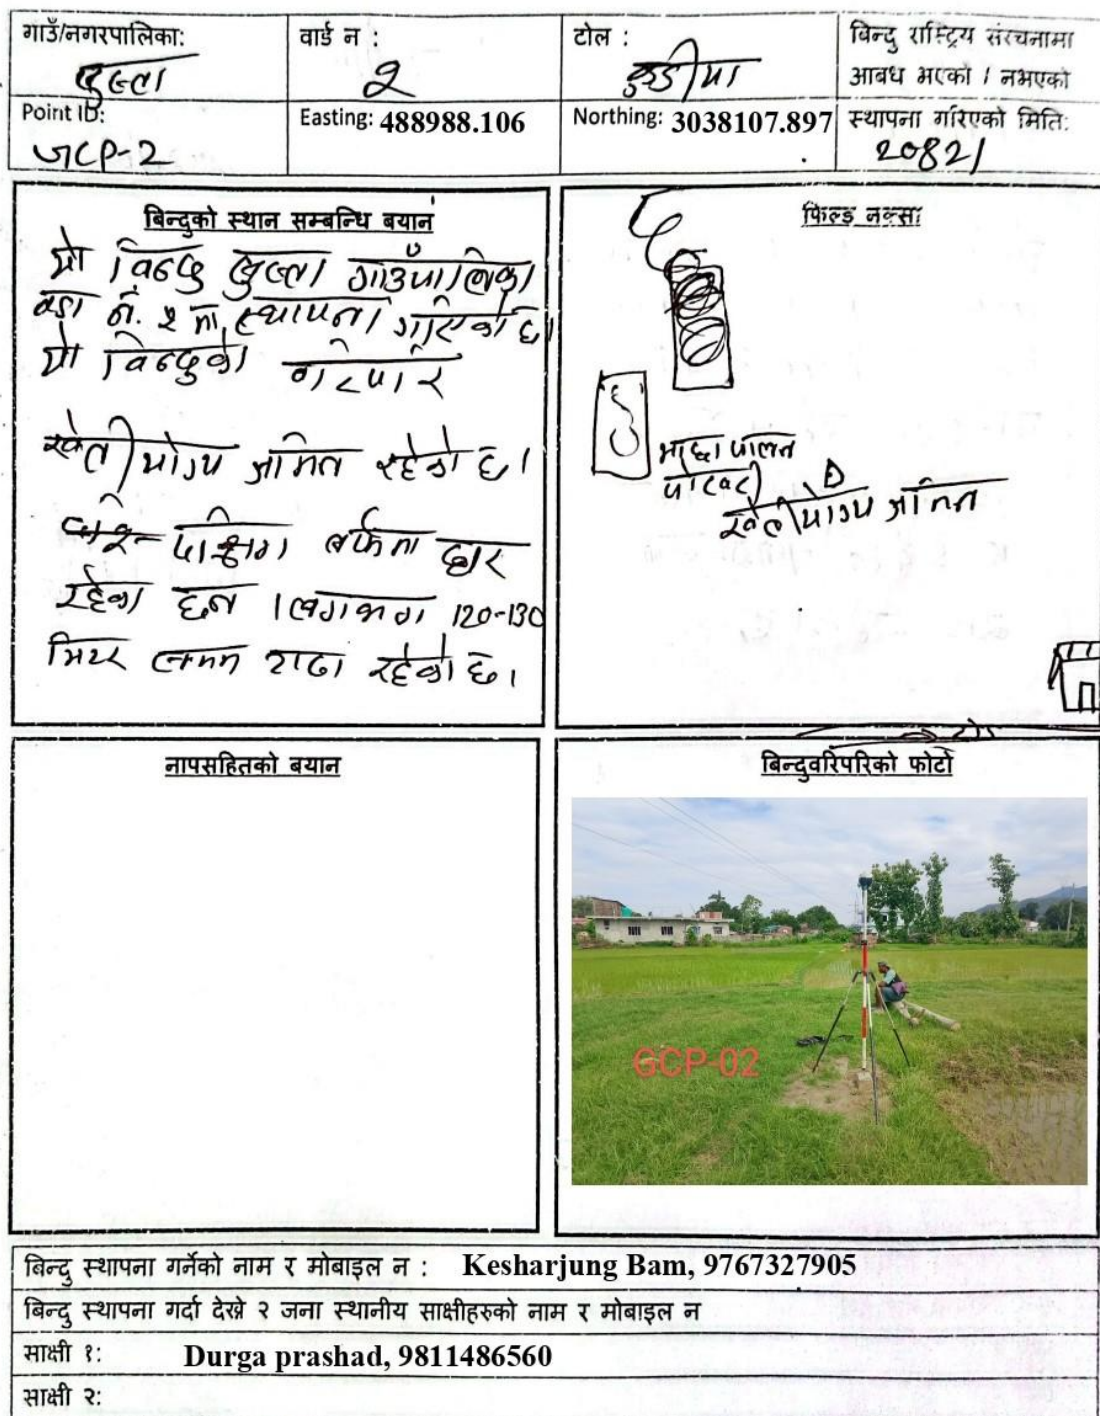 गाउँ/नगरपालिका:
वार्ड न :
२
टोल :
बिन्दु राष्ट्रिय संरचनामा
आबध भएको / नभएको
Point ID:
GCP-2
Easting: 488988.106
Northing: 3038107.897
स्थापना गरिएको मिति:
2082/
बिन्दुको स्थान सम्बन्धि बयान
यो विन्दु गाउँपालिका
वडा नं. २ मा स्थापना गरिएको छ।
यो विन्दुको वरिपरि
खेती योग्य जमिन रहेको छ।
पश्चिम तर्फमा घर
रहेका छन । लगभग 120-130
मिटर टाढा रहेको छ।
फिल्ड नक्सा
माछा पालन
पोखरी
खेती योग्य जमिन
नापसहितको बयान
बिन्दुवरिपरिको फोटो
GCP-02
बिन्दु स्थापना गर्नेको नाम र मोबाइल न : Kesharjung Bam, 9767327905
बिन्दु स्थापना गर्दा देख्ने २ जना स्थानीय साक्षीहरुको नाम र मोबाइल न
साक्षी १: Durga prashad, 9811486560
साक्षी २: